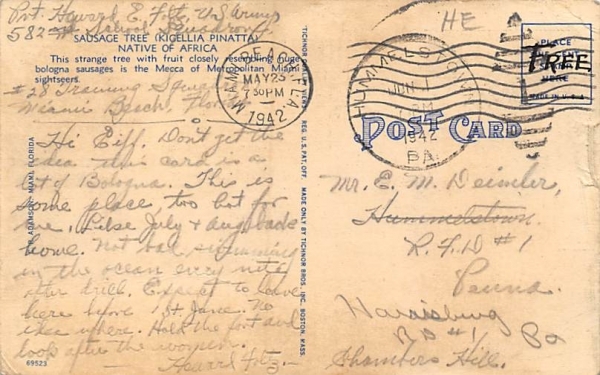 Pvt. Howard E. Fetz, U.S. Army
582
SAUSAGE TREE (KIGELLIA PINATTA)
NATIVE OF AFRICA
This strange tree with fruit closely resembling huge
bologna sausages is the Mecca of Metropolitan Miami
sightseers.
#28 Training Squad
Miami Beach, Florida
Hi Eiff. Don't get the
idea this card is a
lot of Bologna. This is
some place, too hot for
me, like July & Aug back
home. Not bad swimming
in the ocean every nite
after drill. Expect to leave
here before 1st June. No
idea where. Hold the fort and
look after the women.
Howard Fetz.
69523
ADAMSON, MIAMI, FLORIDA
TICHNOR QUALITY VIEWS REG. U. S. PAT. OFF. MADE ONLY BY TICHNOR BROS. INC. BOSTON, MASS.
MIAMI BEACH, FLA.
MAY 25
7 30PM
1942
HE
HUMMELSTOWN
JUN 1
PM
1942
PA.
PLACE
ONE CENT
HERE
MADE IN U.S.A.
FREE
POST CARD
Mr. E. M. Deimler,
Hummelstown.
R. F. D #1
Penna.
Harrisburg
RD #1 Pa
Chambers Hill.